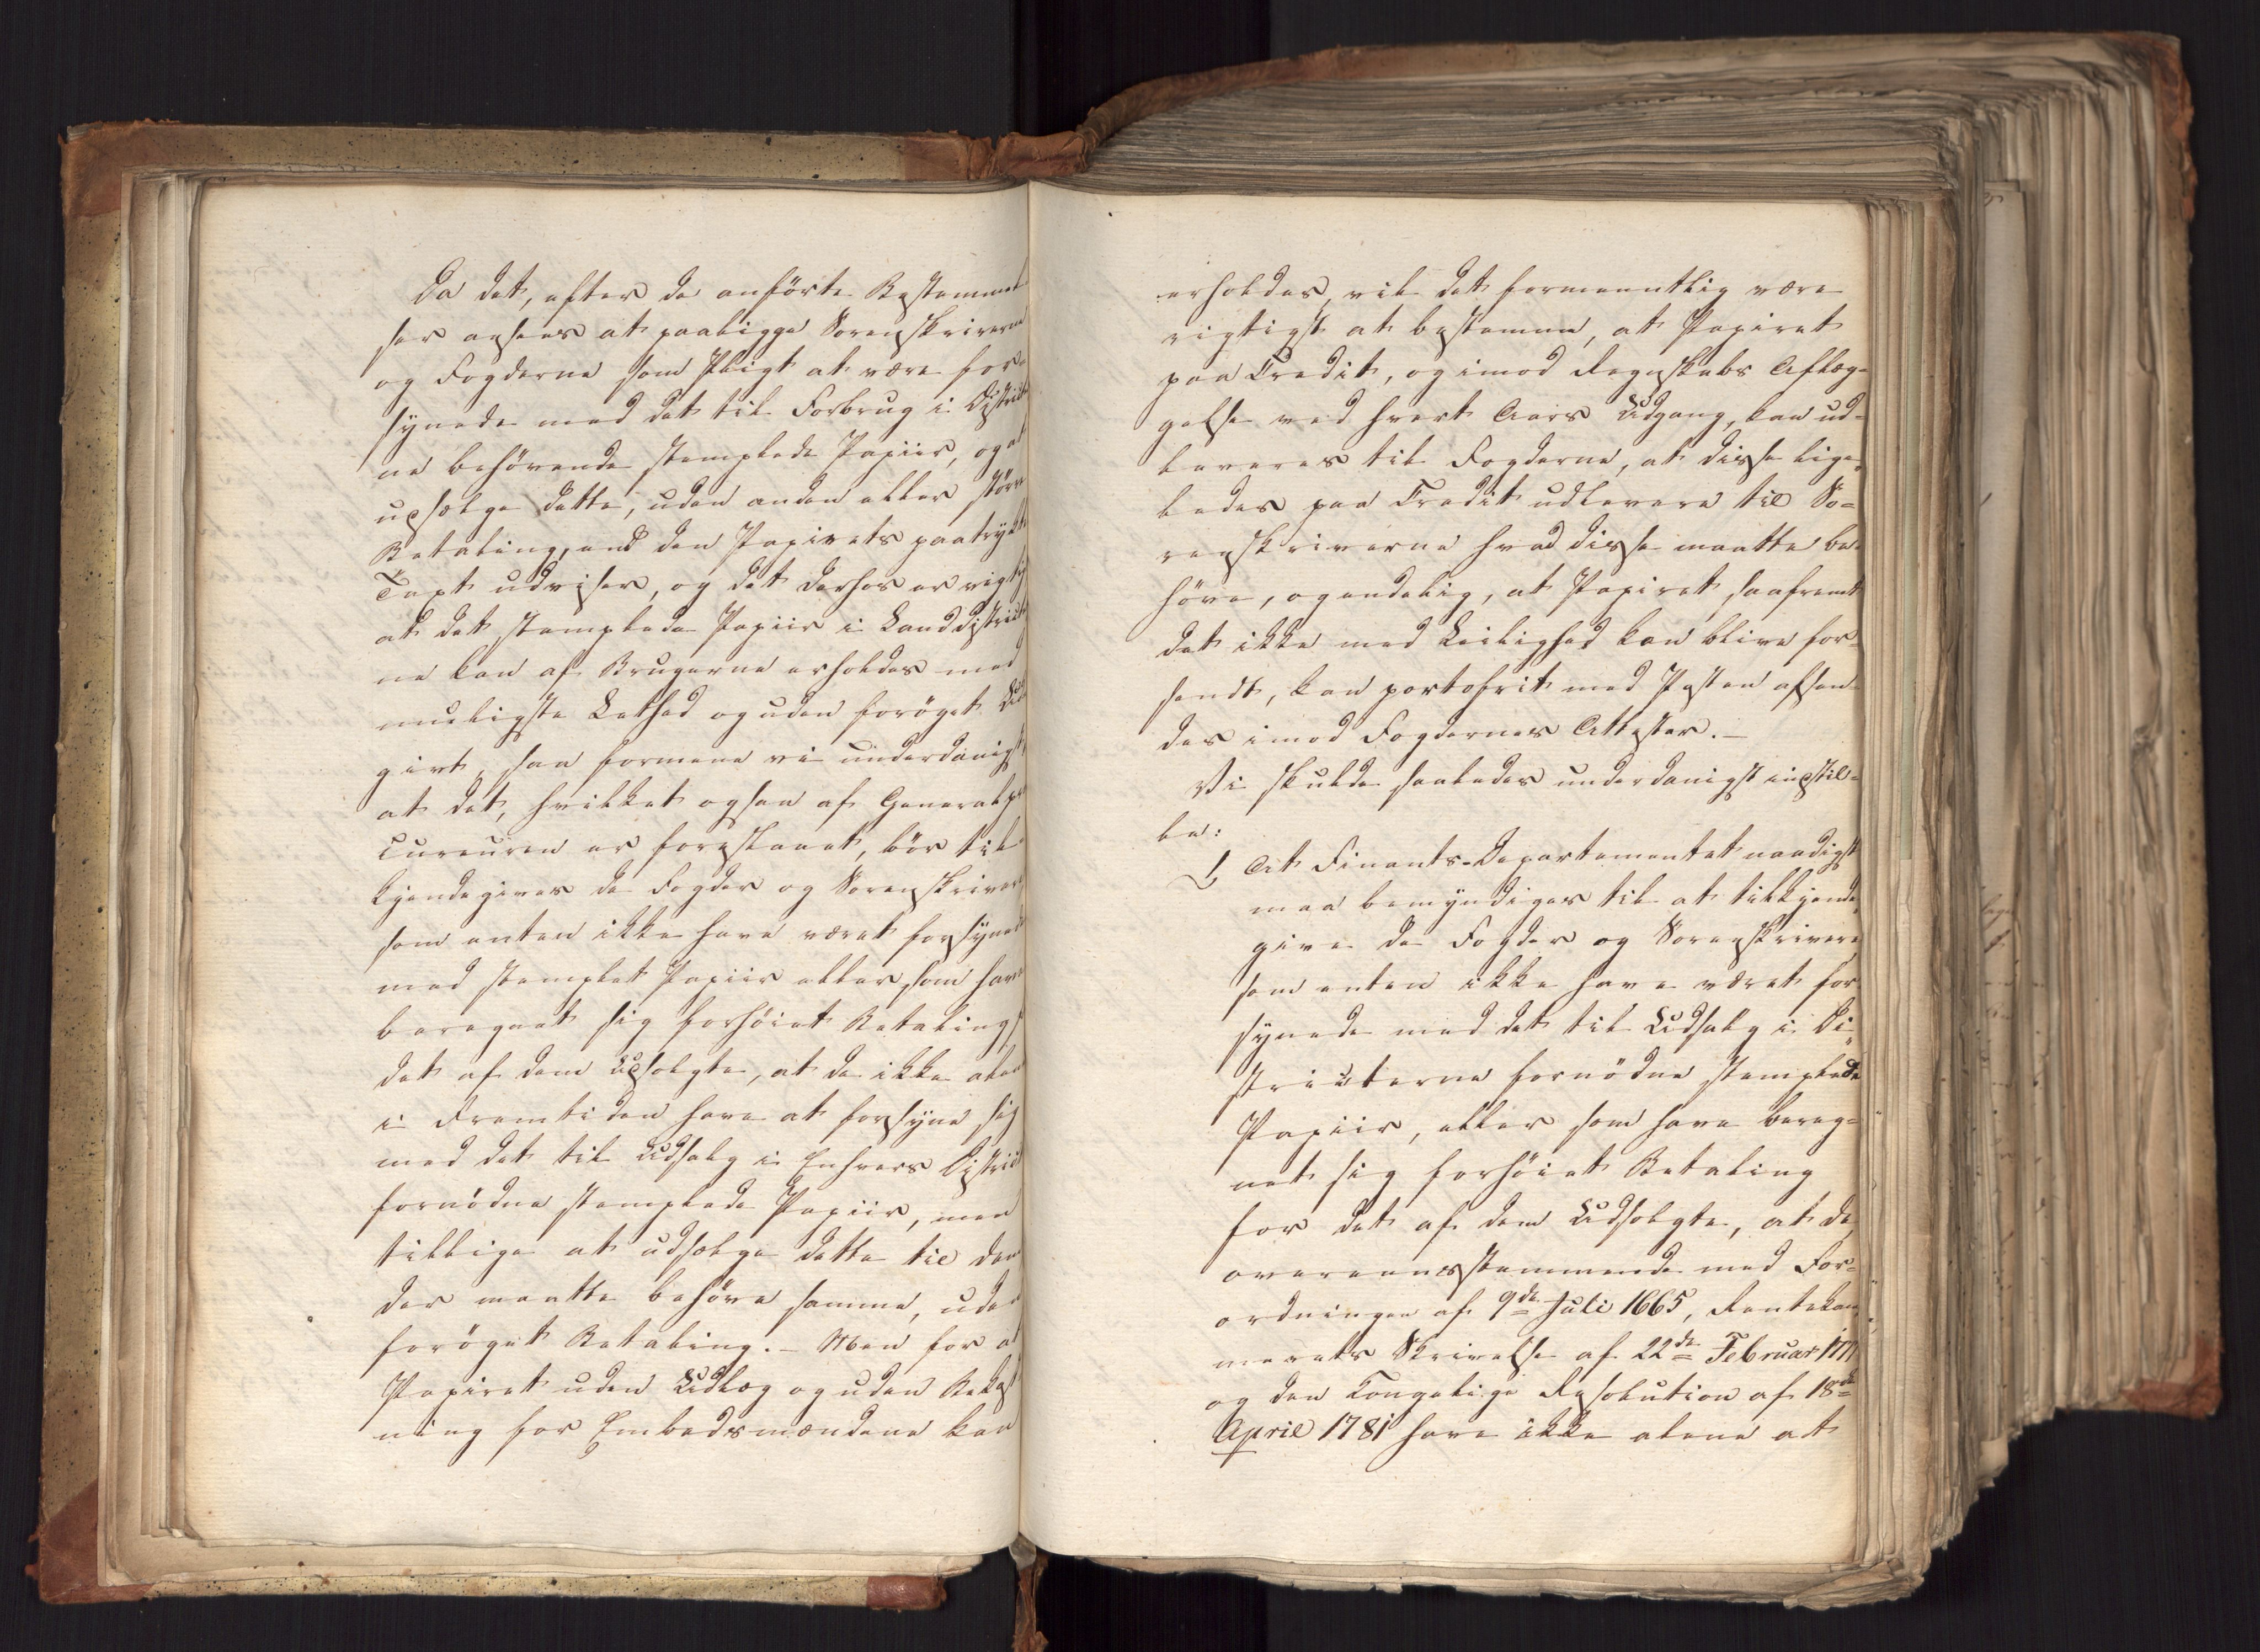 Da det, efter de anførte Bestemmel
ser ansees at paaligge Sorenskriverne
og Fogderne som Pligt at være for-
synede med det til Forbrug i District
ne behøvende stemplede Papiir, og at
upsælge dette, uden anden eller større
Betaling, end den Papirets paatrykte
Taxt udviser, og det derhos er vigtig
at det stemplede Papiir i Landdistricte
ne kan af Brugerne erholdes med
mueligste Lethed og uden forøget Ud
givt, saa formene vi underdanigst,
at det, hvilket ogsaa af Generalpro
cureuren er foreslaaet, bør til
kjendegives de Fogder og Sorenskrivere
som enten ikke have været forsynede
med stemplet Papiir eller som have
beregnet sig forhøiet Betaling f
det af dem Upsolgte, at de ikke alene
i Fremtiden have at forsyne sig
med det til Udsalg i Enhvers District
fornødne stemplede Papiir, men
tillige at udsælge dette til dem
der maatte behøve samme, uden
forøget Betaling. – Men for at
Papiret uden Udlæg og uden Bekost
ning for Embedsmændene kan
erholdes, vil det formeentlig være
rigtigst at bestemme, at Papiret
paa Credit, og imod Regnskabs Aflæg-
gelse ved hvert Aars Udgang, kan ud-
leveres til Fogderne, at disse lige-
ledes paa Credit udlevere til So=
renskriverne hvad disse maatte be-
høve, og endelig, at Papiret, saafremt
det ikke med Leilighed kan blive for-
sendt, kan portofrit med Posten afsen-
des imod Fogdernes Attester. –
Vi skulde saaledes underdanigst instil-
le:
1, At Finants-Departementet naadigst
maa bemyndiges til at tilkjende-
give de Fogder og Sorenskrivere
som enten ikke have været for
synede med det til Udsalg i Di-
stricterne fornødne stemplede
Papiir, eller som have bereg-
net sig forhøiet Betaling
for det af dem Udsolgte, at de,
overeensstemmende med For-
ordningen af 9de Juli 1665, Rentekam
merets Skrivelse af 22de Februar
og den Kongelige Resolution af 18de
April 1781 have ikke alene at